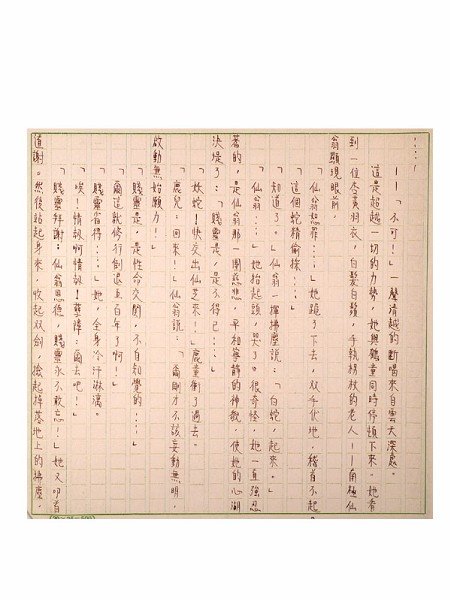 ……！
——「不可！」一聲清越的斷喝來自雲天深處。
這是超越一切的力勢，她與鶴童同時停頓下來。她看
到一位杏黃羽衣，白髮白鬚，手執柺杖的老人——南極仙
翁顯現眼前
「仙翁恕罪……」她跪了下去，双手伏地，稽首不起。
「這個蛇精偷採……」
「知道了。」仙翁一揮拂塵說：「白蛇，起來。」
「仙翁……」她抬起頭，哭了。很奇怪，她一直強忍
著的，是仙翁那一團慈悲，平和寧靜的神貌，使她的心湖
決堤了：「賤靈是，是不得已……」
「妖蛇！快交出仙芝來！」鹿童衝了過去。
「鹿兒，回來！」仙翁說：「爾剛才不該妄動無明，
啟動無始願力！」
「賤靈是，是性命交關，不自知覺的……」
「爾這就修行倒退五百年了啊！」
「賤靈省得……」她，全身冷汗淋漓。
「唉！情報啊情報！孽障：爾去吧！」
「賤靈拜謝，仙翁恩德，賤靈永不敢忘！」她又叩首
道謝。然後站起身來，收起双劍，撿起掉落地上的拂塵。